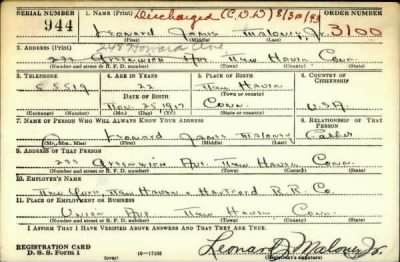 SERIAL NUMBER 1. NAME (Print) Discharged (C.D.D) 8/30/43 ORDER NUMBER
944 Leonard James Maloney, Jr. 3100
(First) (Middle) (Last)
2. ADDRESS (Print) 248 Howard Ave
233 Greenwich Ave. New Haven Conn
(Number and street or R. F. D. number) (Town) (County) (State)
3. TELEPHONE 4. AGE IN YEARS 5. PLACE OF BIRTH 6. COUNTRY OF CITIZENSHIP
22 New Haven
DATE OF BIRTH (Town or county)
Nov. 25 1917 Conn. USA
(Exchange) (Number) (Mo.) (Day) (Yr.) (State or country)
7. NAME OF PERSON WHO WILL ALWAYS KNOW YOUR ADDRESS 8. RELATIONSHIP OF THAT PERSON
Leonard James Maloney Father
(Mr., Mrs., Miss) (First) (Middle) (Last)
9. ADDRESS OF THAT PERSON
233 Greenwich Ave. New Haven Conn.
(Number and street or R. F. D. number) (Town) (County) (State)
10. EMPLOYER'S NAME
New York, New Haven & Hartford R.R. Co.
11. PLACE OF EMPLOYMENT OR BUSINESS
Union Ave New Haven Conn.
(Number and street or R. F. D. number) (Town) (County) (State)
I AFFIRM THAT I HAVE VERIFIED ABOVE ANSWERS AND THAT THEY ARE TRUE.
REGISTRATION CARD
D. S. S. Form 1 (over) Leonard J. Maloney Jr.
(Registrant's signature)